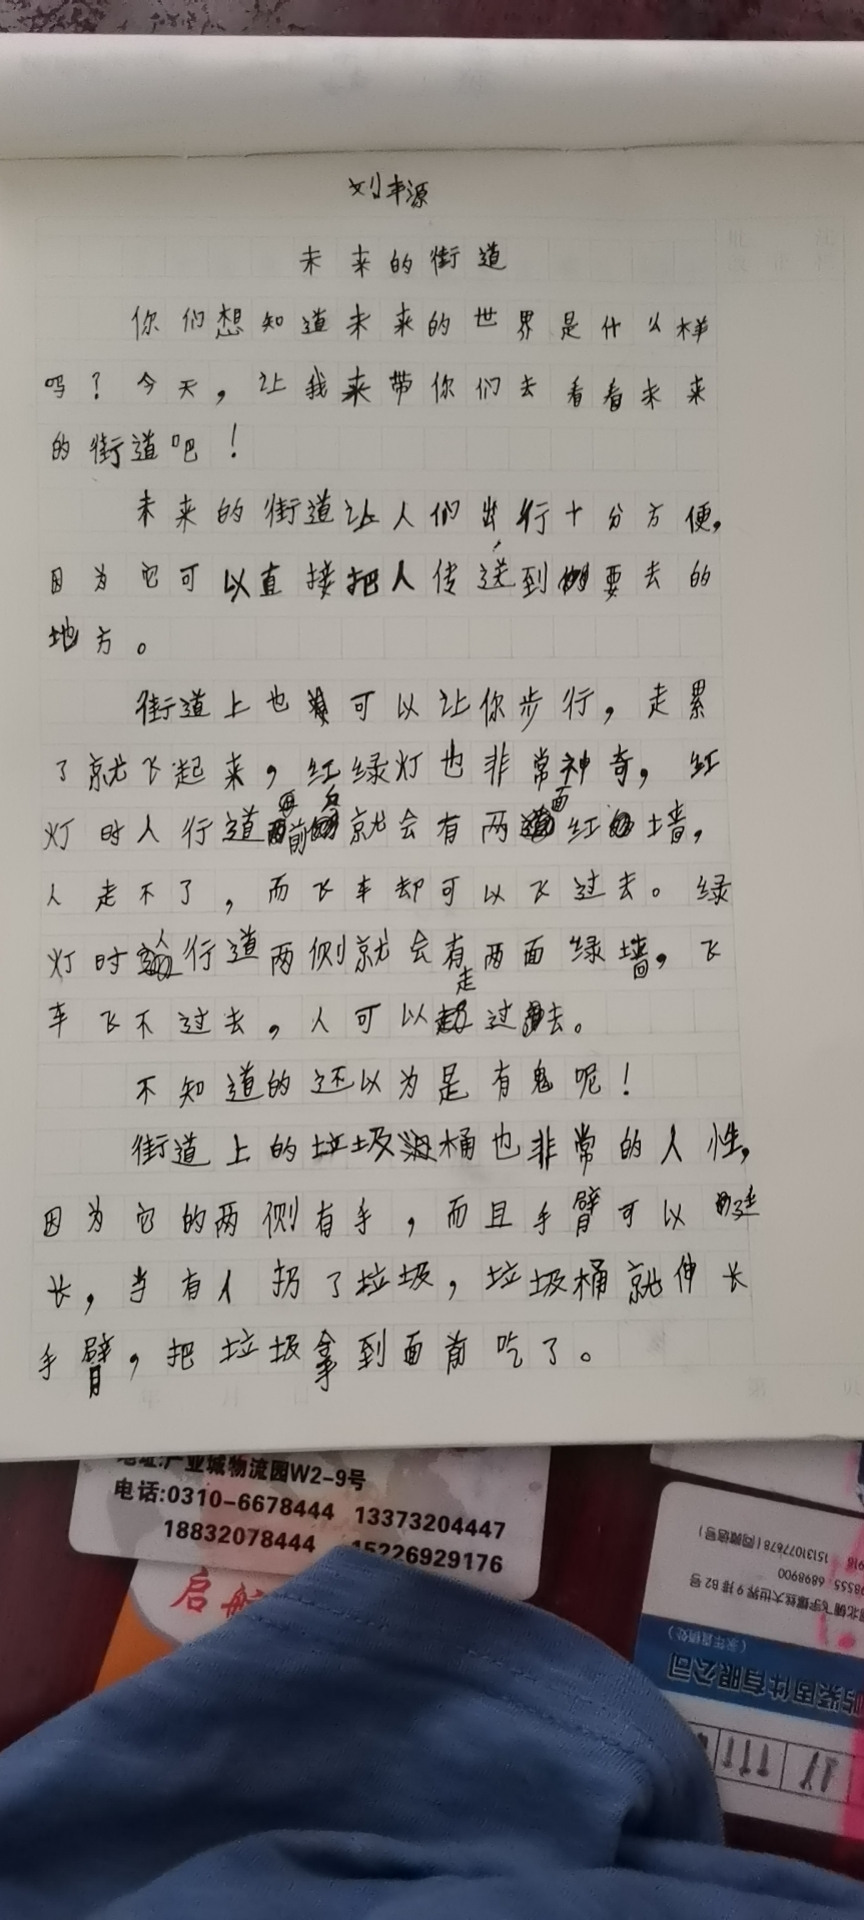 刘丰源
未来的街道
你们想知道未来的世界是什么样
吗？今天，让我来带你们去看看未来
的街道吧！
未来的街道让人们出行十分方便，
因为它可以直接把人传送到要去的
地方。
街道上也可以让你步行，走累
了就飞起来，红绿灯也非常神奇，红
灯时人行道前就会有两面红墙，
人走不了，而飞车却可以飞过去。绿
灯时人行道两侧就会有两面绿墙，飞
车飞不过去，人可以走过去。
不知道的还以为是有鬼呢！
街道上的垃圾桶也非常的人性，
因为它的两侧有手，而且手臂可以
长，当有人扔了垃圾，垃圾桶就伸长
手臂，把垃圾拿到面前吃了。
地址:产业城物流园W2-9号
电话:0310-6678444 13373204447
18832078444 15226929176
启航
15131077678(同微信号)
98555 6898900
大世界9排82号
紧固件有限公司